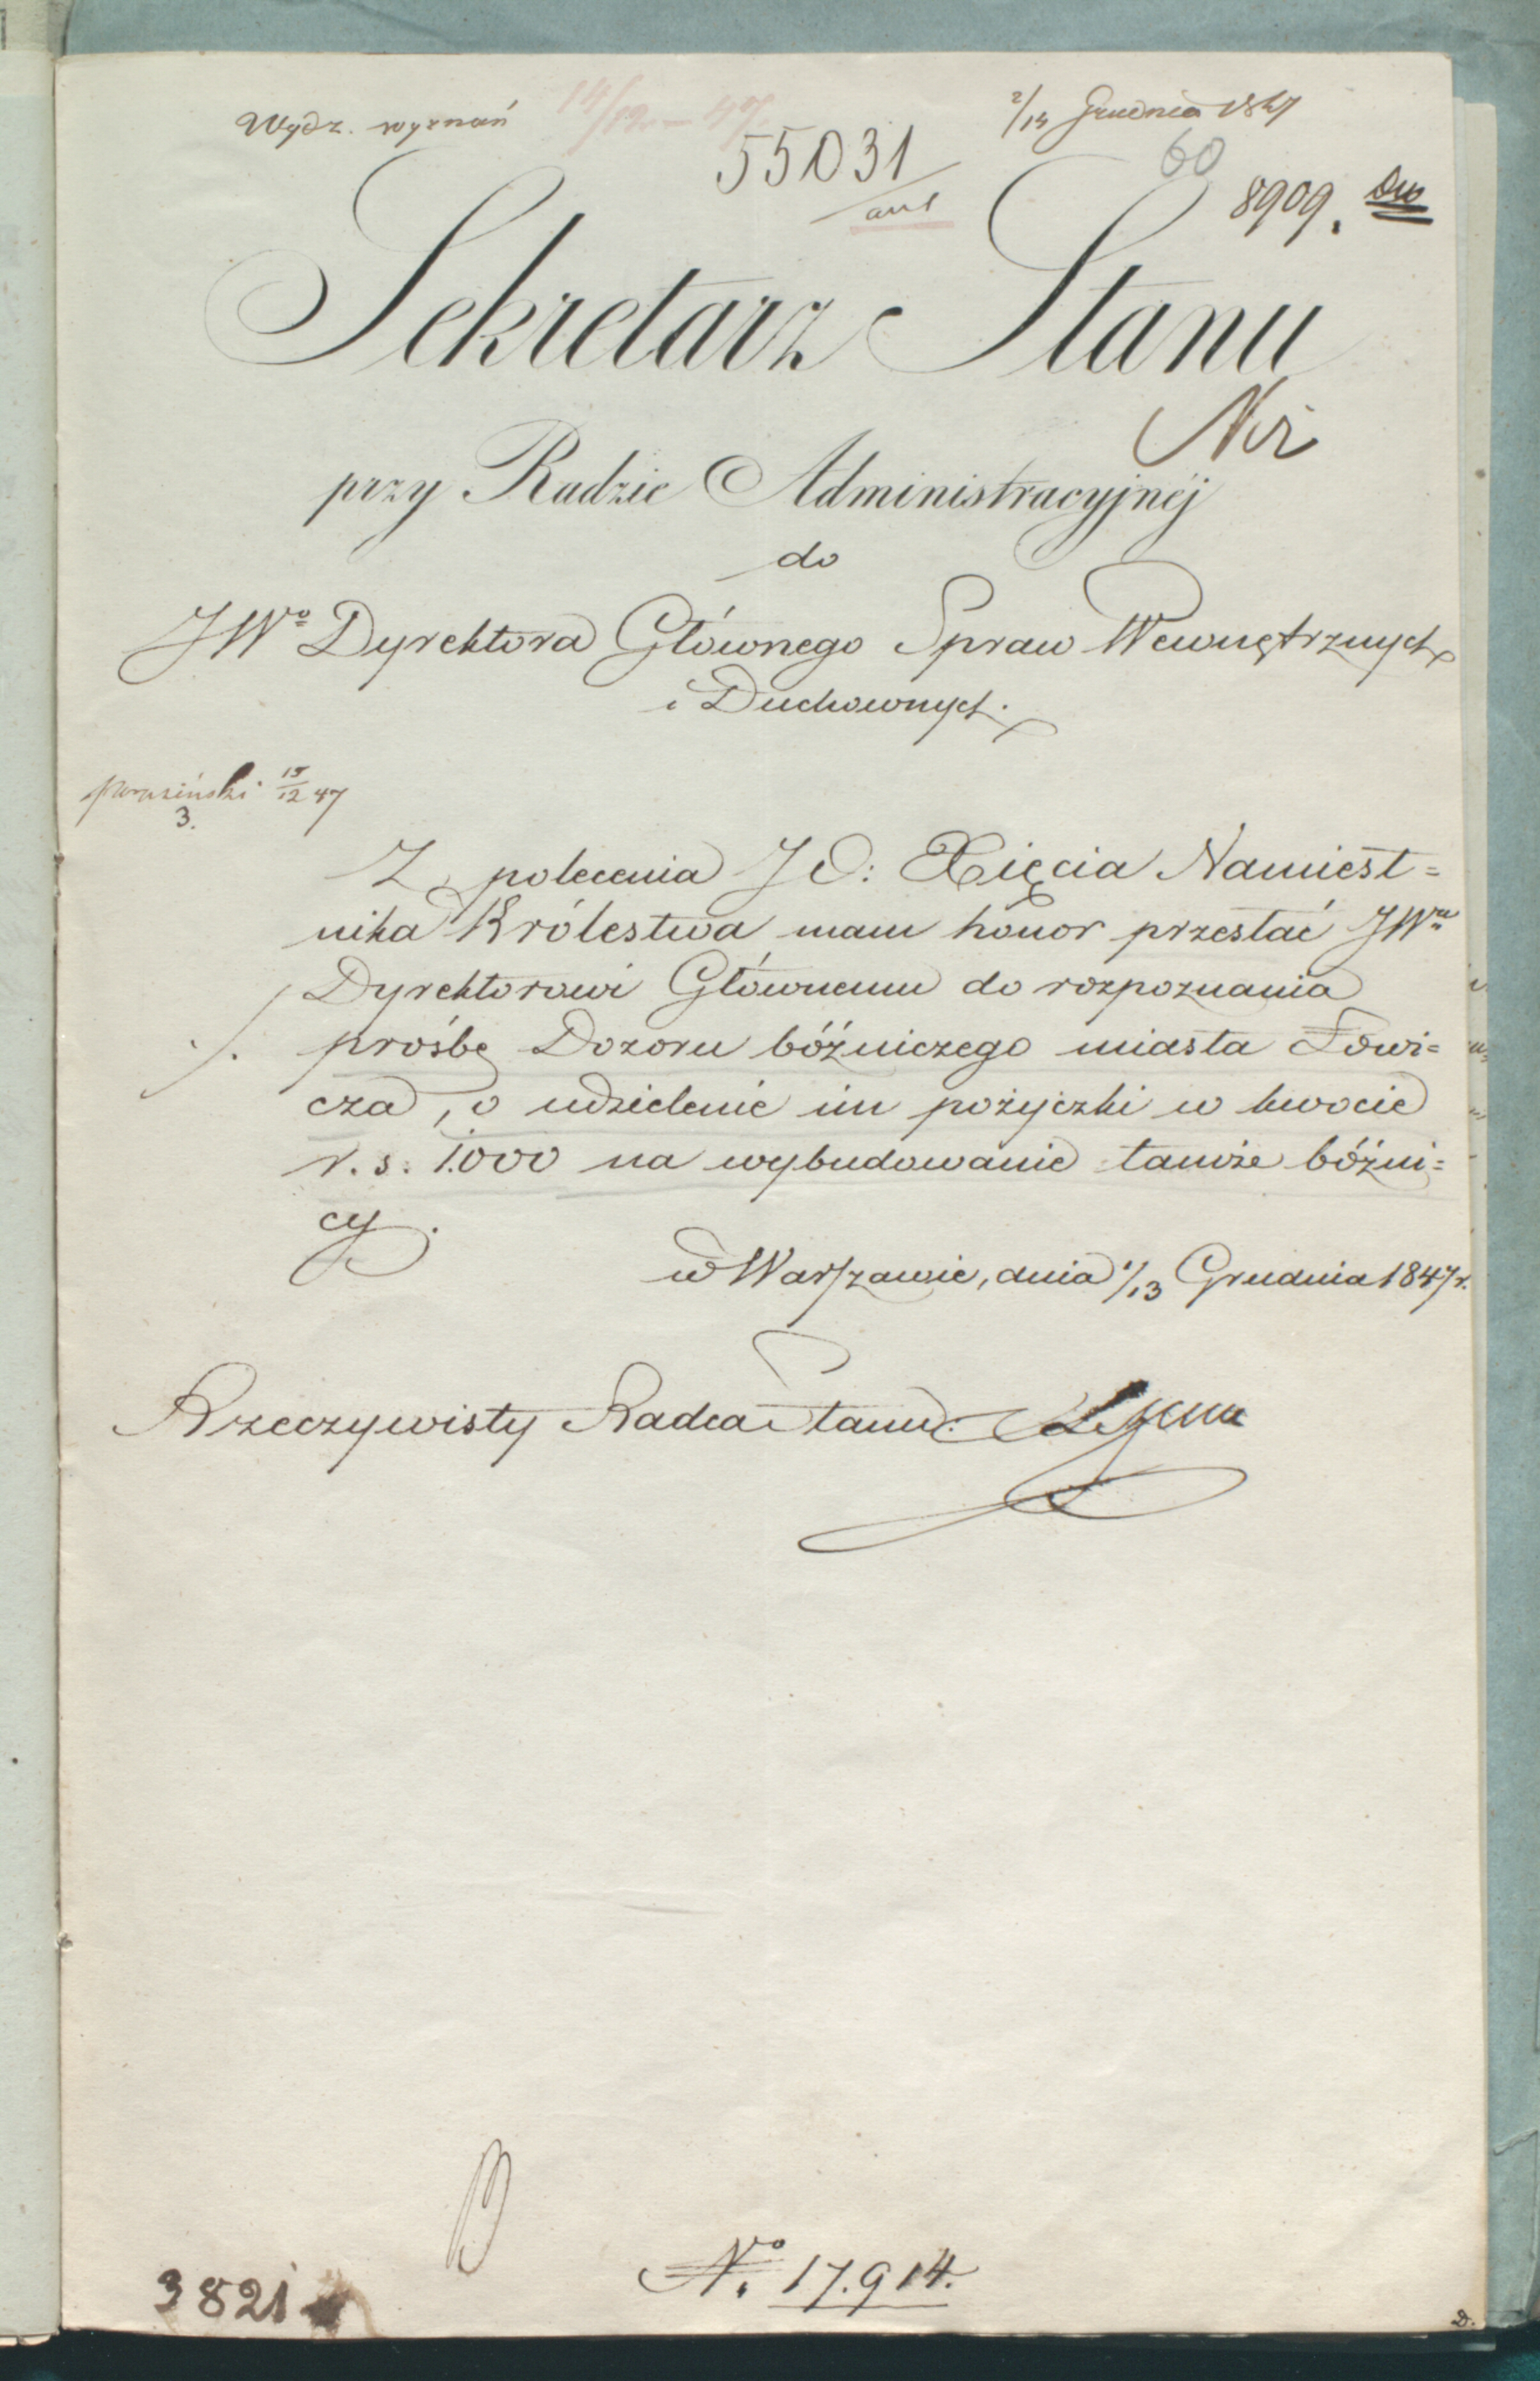 Wydz. wyznań
14/12 – 47
2/14 Grudnia 1847
55031
60
8909.
Sekretarz Stanu
przy Radzie Administracyjnéj
do
JWº Dyrektora Głównego Spraw Wewnętrznych
i Duchownych.
15/12 47
3.
Z polecenia JO: Xięcia Namiest=
nika Królestwa mam honor przesłać JWu
Dyrektorowi Głównemu do rozpoznania
prośbę Dozoru bóźniczego miasta Łowi=
cza, o udzielenie im pożyczki w kwocie
r. s. 1.000 na wybudowanie tamże bóźni=
cy.
w Warszawie, dnia 1/13 Grudnia 1847 r.
Rzeczywisty Radca Stanu:
Nº 17.914.
3821